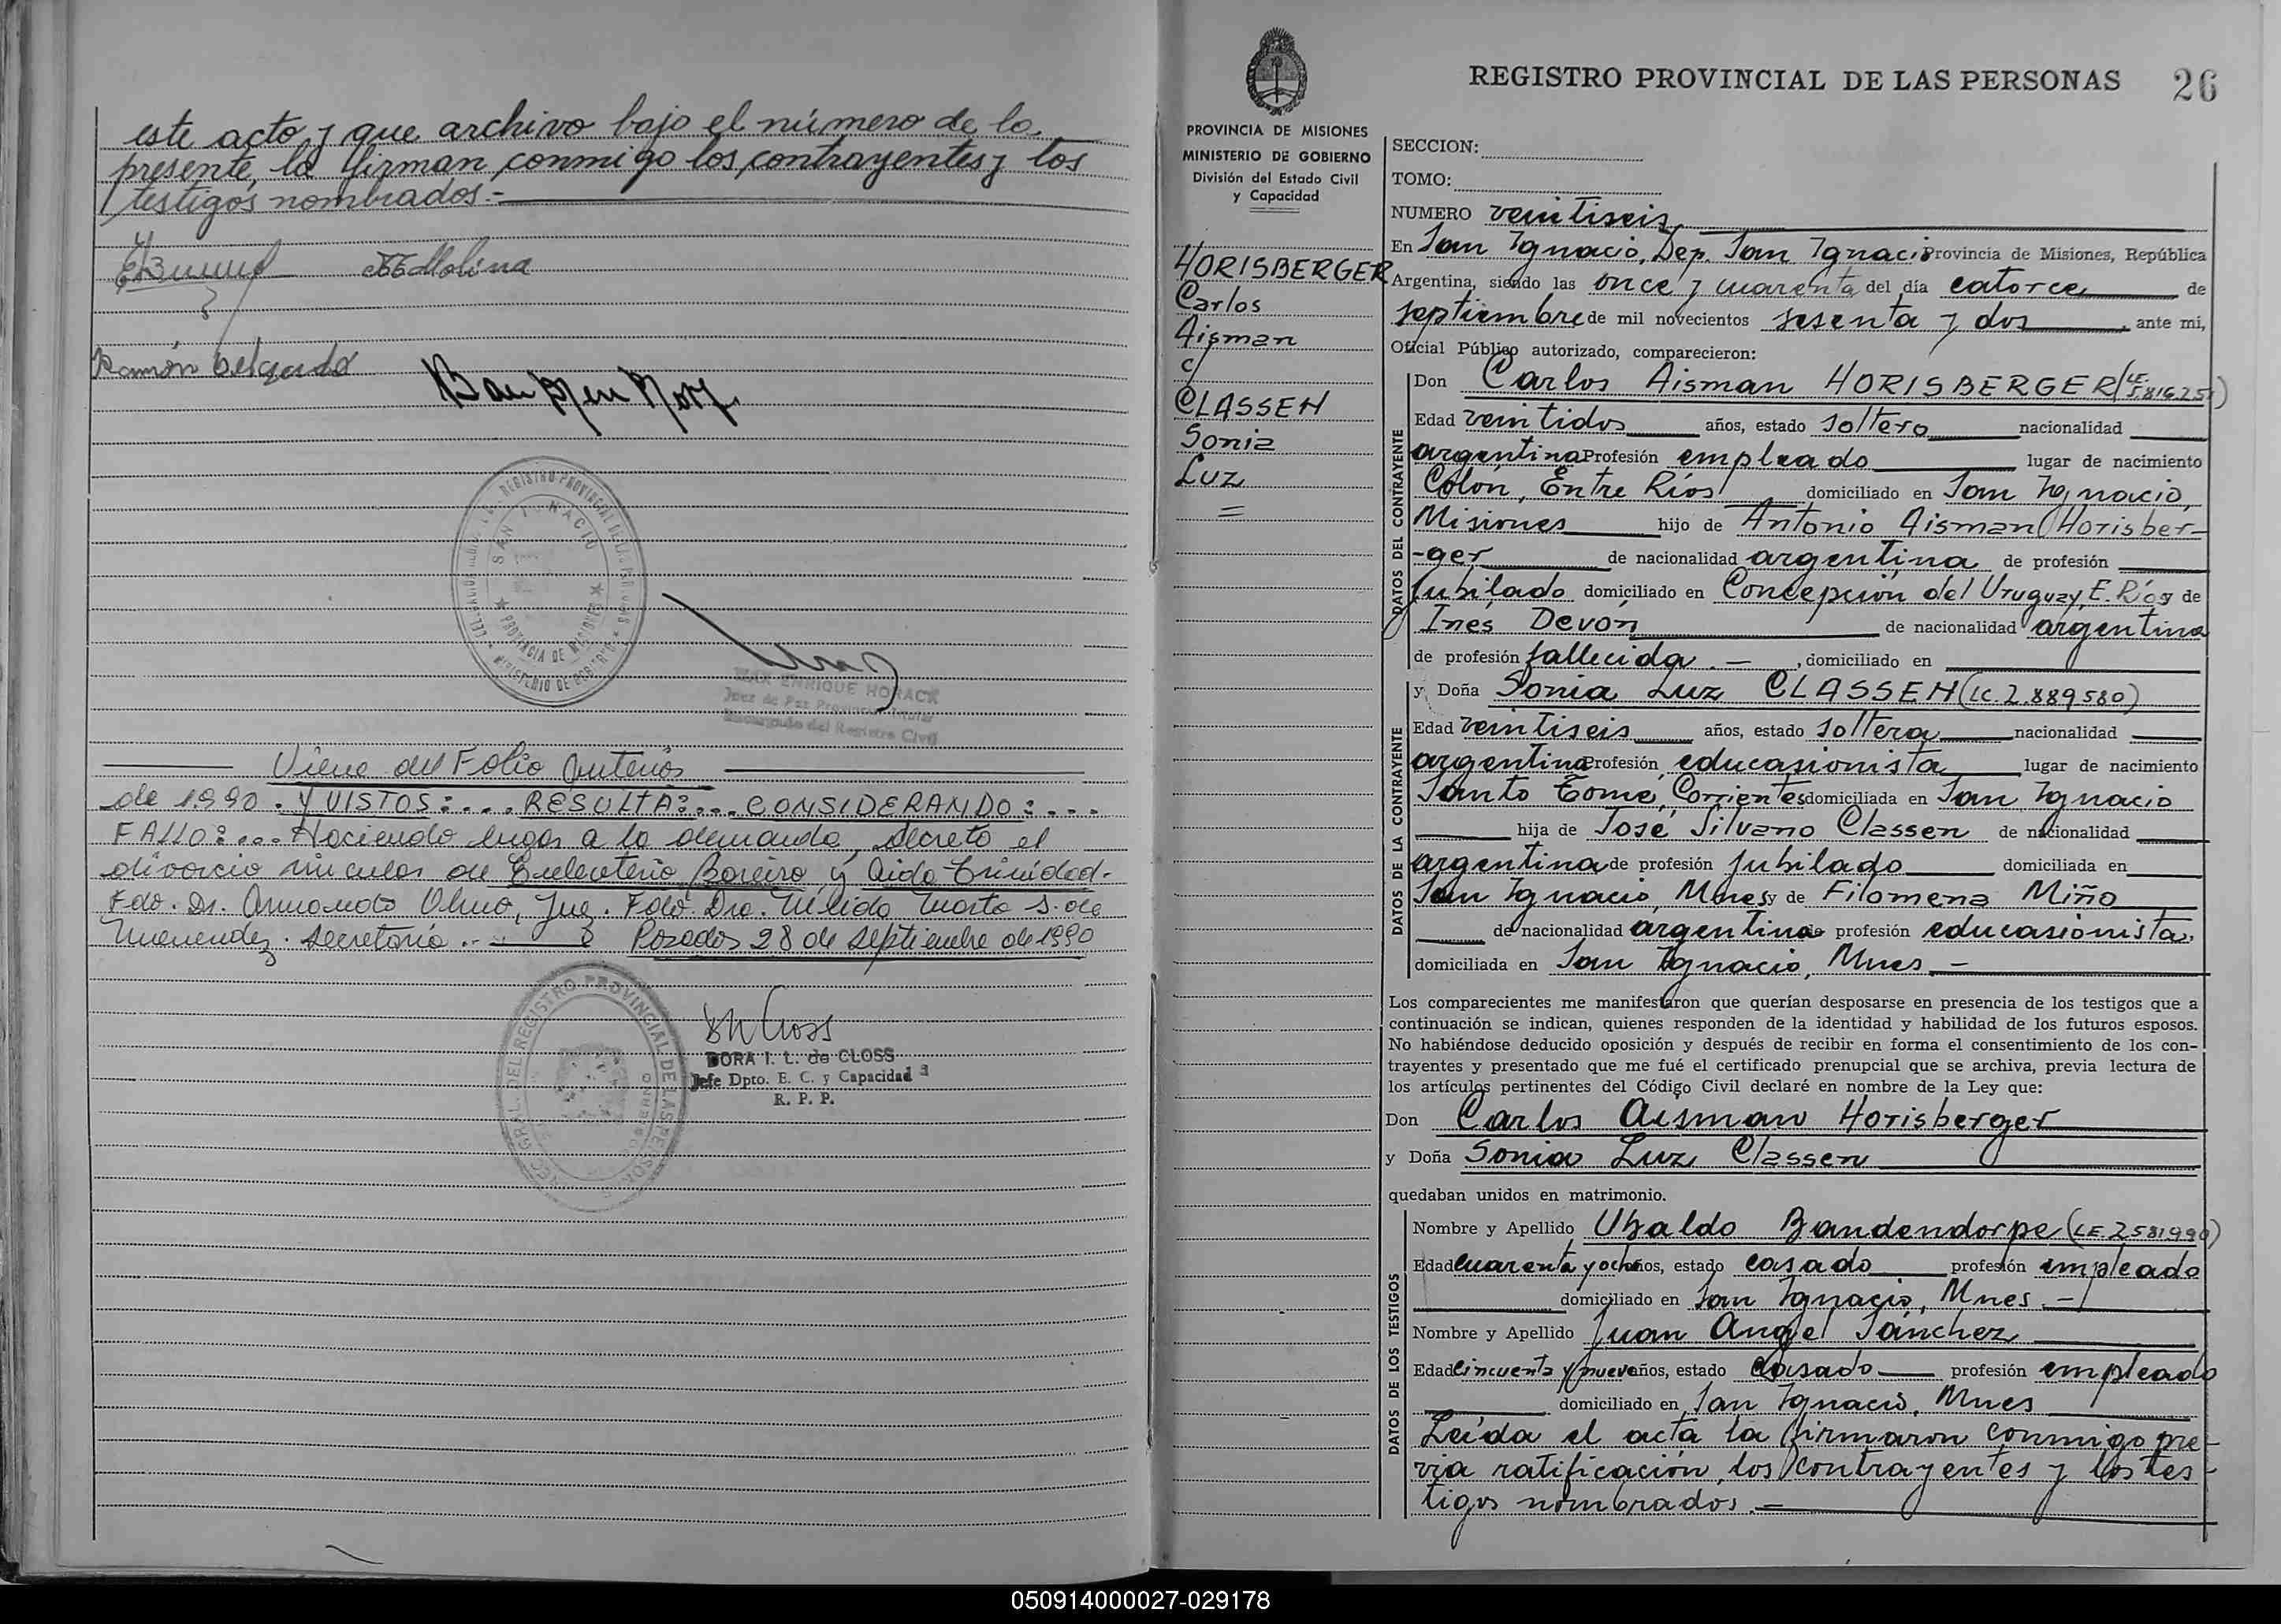 este acto y que archivo bajo el número de la
presente, la firman conmigo los contrayentes y los
testigos nombrados.-
Molina
Ramón Delgado
REGISTRO PROVINCIAL DE LAS PERSONAS
SAN IGNACIO
PROVINCIA DE MISIONES
MINISTERIO DE GOBIERNO
MAX ENRIQUE HORACK
Juez de Paz Provincial Titular
Encargado del Registro Civil
Viene del Folio Anterior
de 1990. Y VISTOS:.... RESULTA:... CONSIDERANDO:...
FALLO:... Haciendo lugar a la demanda, decreto el
divorcio vincular de Eleuterio Boreiro y Aida Trinidad.
Fdo. Dr. Armando Olmo, Juez. Fdo. Dra. Nélida Marta S. de
Menendez. Secretaria.- Posadas 28 de septiembre de 1990
DEL REGISTRO PROVINCIAL DE LAS PERSONAS
DORA I. L. de CLOSS
Jefe Dpto. E. C. y Capacidad
R. P. P.
REGISTRO PROVINCIAL DE LAS PERSONAS 26
PROVINCIA DE MISIONES
MINISTERIO DE GOBIERNO
División del Estado Civil
y Capacidad
HORISBERGER
Carlos
Aisman
c/
CLASSEN
Sonia
Luz
=
SECCION:
TOMO:
NUMERO veintiseis
En San Ignacio, Dep. San Ignacio Provincia de Misiones, República
Argentina, siendo las once y cuarenta del día catorce de
septiembre de mil novecientos sesenta y dos, ante mi,
Oficial Público autorizado, comparecieron:
DATOS DEL CONTRAYENTE
Don Carlos Aisman HORISBERGER (LE.
Edad veintidos años, estado soltero nacionalidad
argentina Profesión empleado lugar de nacimiento
Colón, Entre Ríos domiciliado en San Ignacio,
Misiones hijo de Antonio Aisman Horisber-
-ger de nacionalidad argentina de profesión
Jubilado domiciliado en Concepción del Uruguay, E. Ríos y de
Inés Devón de nacionalidad argentina
de profesión fallecida.-, domiciliado en
DATOS DE LA CONTRAYENTE
y Doña Sonia Luz CLASSEN (LC. 2.889580)
Edad veintiseis años, estado soltera nacionalidad
argentina Profesión educasionista lugar de nacimiento
Santo Tomé, Corrientes domiciliada en San Ignacio
hija de José Silvano Classen de nacionalidad
argentina de profesión Jubilado domiciliada en
San Ignacio, Mnes y de Filomena Miño
de nacionalidad argentina de profesión educasionista,
domiciliada en San Ignacio, Mnes.-
Los comparecientes me manifestaron que querían desposarse en presencia de los testigos que a
continuación se indican, quienes responden de la identidad y habilidad de los futuros esposos.
No habiéndose deducido oposición y después de recibir en forma el consentimiento de los con-
trayentes y presentado que me fué el certificado prenupcial que se archiva, previa lectura de
los artículos pertinentes del Código Civil declaré en nombre de la Ley que:
Don Carlos Aisman Horisberger
y Doña Sonia Luz Classen
quedaban unidos en matrimonio.
DATOS DE LOS TESTIGOS
Nombre y Apellido Ubaldo Bandendorpe (LE. 2581990)
Edad cuarenta y ocho años, estado casado profesión empleado
domiciliado en San Ignacio, Mnes.-
Nombre y Apellido Juan Angel Sánchez
Edad cincuenta y nueve años, estado casado profesión empleado
domiciliado en San Ignacio, Mnes
Leída el acta la firmaron conmigo pre-
via ratificación, los contrayentes y los tes-
tigos nombrados.-
050914000027-029178